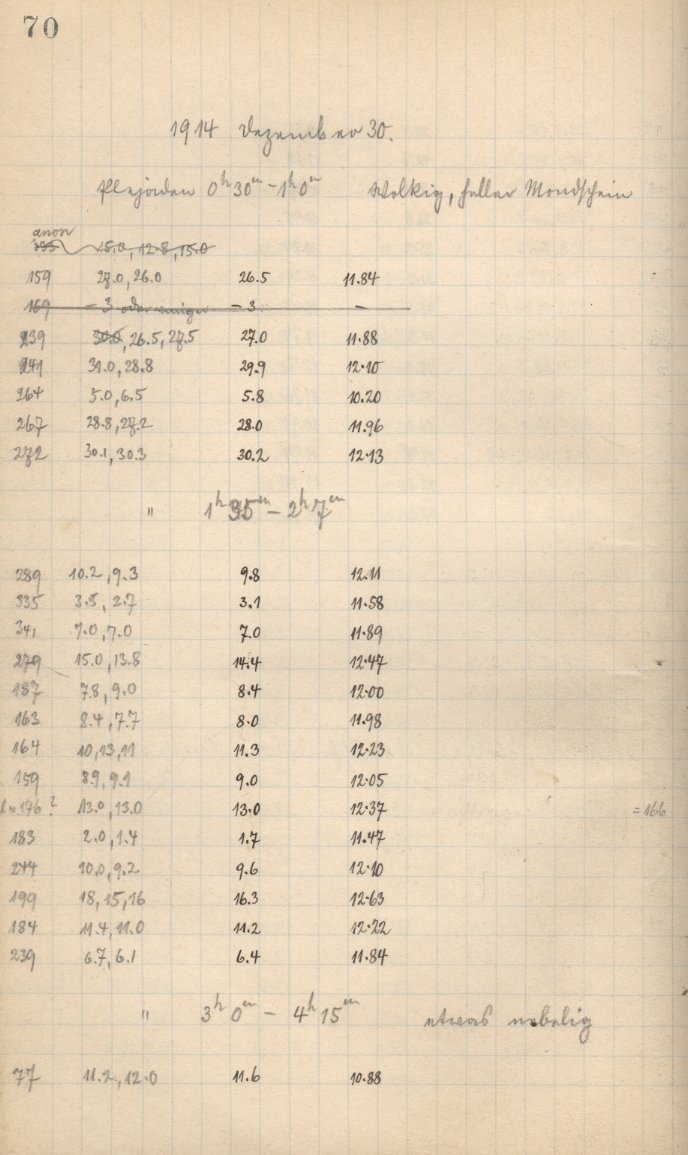 70
1914 Dezember 30.
Plejaden 0h30m - 1h0m Wolkig, heller Mondschein
anon
335 15.0, 12.8, 15.0
159 27.0, 26.0 26.5 11.84
169 - 3 oder weniger - 3 -
239 30.0, 26.5, 27.5 27.0 11.88
241 31.0, 28.8 29.9 12.10
264 5.0, 6.5 5.8 10.20
267 28.8, 27.2 28.0 11.96
272 30.1, 30.3 30.2 12.13
" 1h35m - 2h7m
289 10.2, 9.3 9.8 12.11
335 3.5, 2.7 3.1 11.58
341 7.0, 7.0 7.0 11.89
279 15.0, 13.8 14.4 12.47
187 7.8, 9.0 8.4 12.00
163 8.4, 7.7 8.0 11.98
164 10, 13, 11 11.3 12.23
159 8.9, 9.1 9.0 12.05
196? 13.0, 13.0 13.0 12.37 = 166
183 2.0, 1.4 1.7 11.47
244 10.0, 9.2 9.6 12.10
199 18, 15, 16 16.3 12.63
184 11.4, 11.0 11.2 12.22
239 6.7, 6.1 6.4 11.84
" 3h0m - 4h15m etwas nebelig
77 11.2, 12.0 11.6 10.88